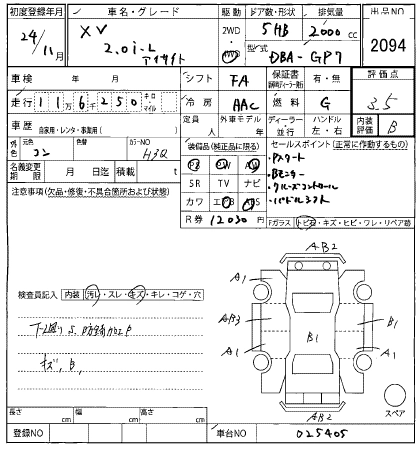 初度登録年月 車名・グレード 駆動 ドア数・形状 排気量 出品NO
24/11月 XV 2.0i-L アイサイト 2WD 4WD 5HB 2000cc 2094
型式 DBA-GP7
車検 年 月 シフト FA 保証書 有・無 評価点
走行 116千250 キロ・マイル 冷房 AAC 燃料 G 3.5
車歴 自家用・レンタ・事業用( ) 定員 人 外車モデル 年 ディーラー 並行 ハンドル 左・右 内装評価 B
外色 元色 コン 色替 カラーNO H3Q
装備品(純正品に限る) セールスポイント(正常に動作するもの)
PS PW AW
SR TV ナビ
カワ エアB ABS
R券 12030 円
・Pスタート
・Bモニター
・クルーズコントロール
・パドルシフト
名義変更期限 月 日迄 積載 t
注意事項(欠品・修復・不具合箇所および状態)
Fガラス トビ石・キズ・ヒビ・ワレ・リペア跡
検査員記入 内装 汚れ・スレ・キズ・キレ・コゲ・穴
下廻りS、防錆加工P
キズ、B、
AB2
A1 A1
AB3 B1 B1
A1 A1
AB2
スペア
長さ cm 幅 cm 高さ cm
登録NO 車台NO 025405